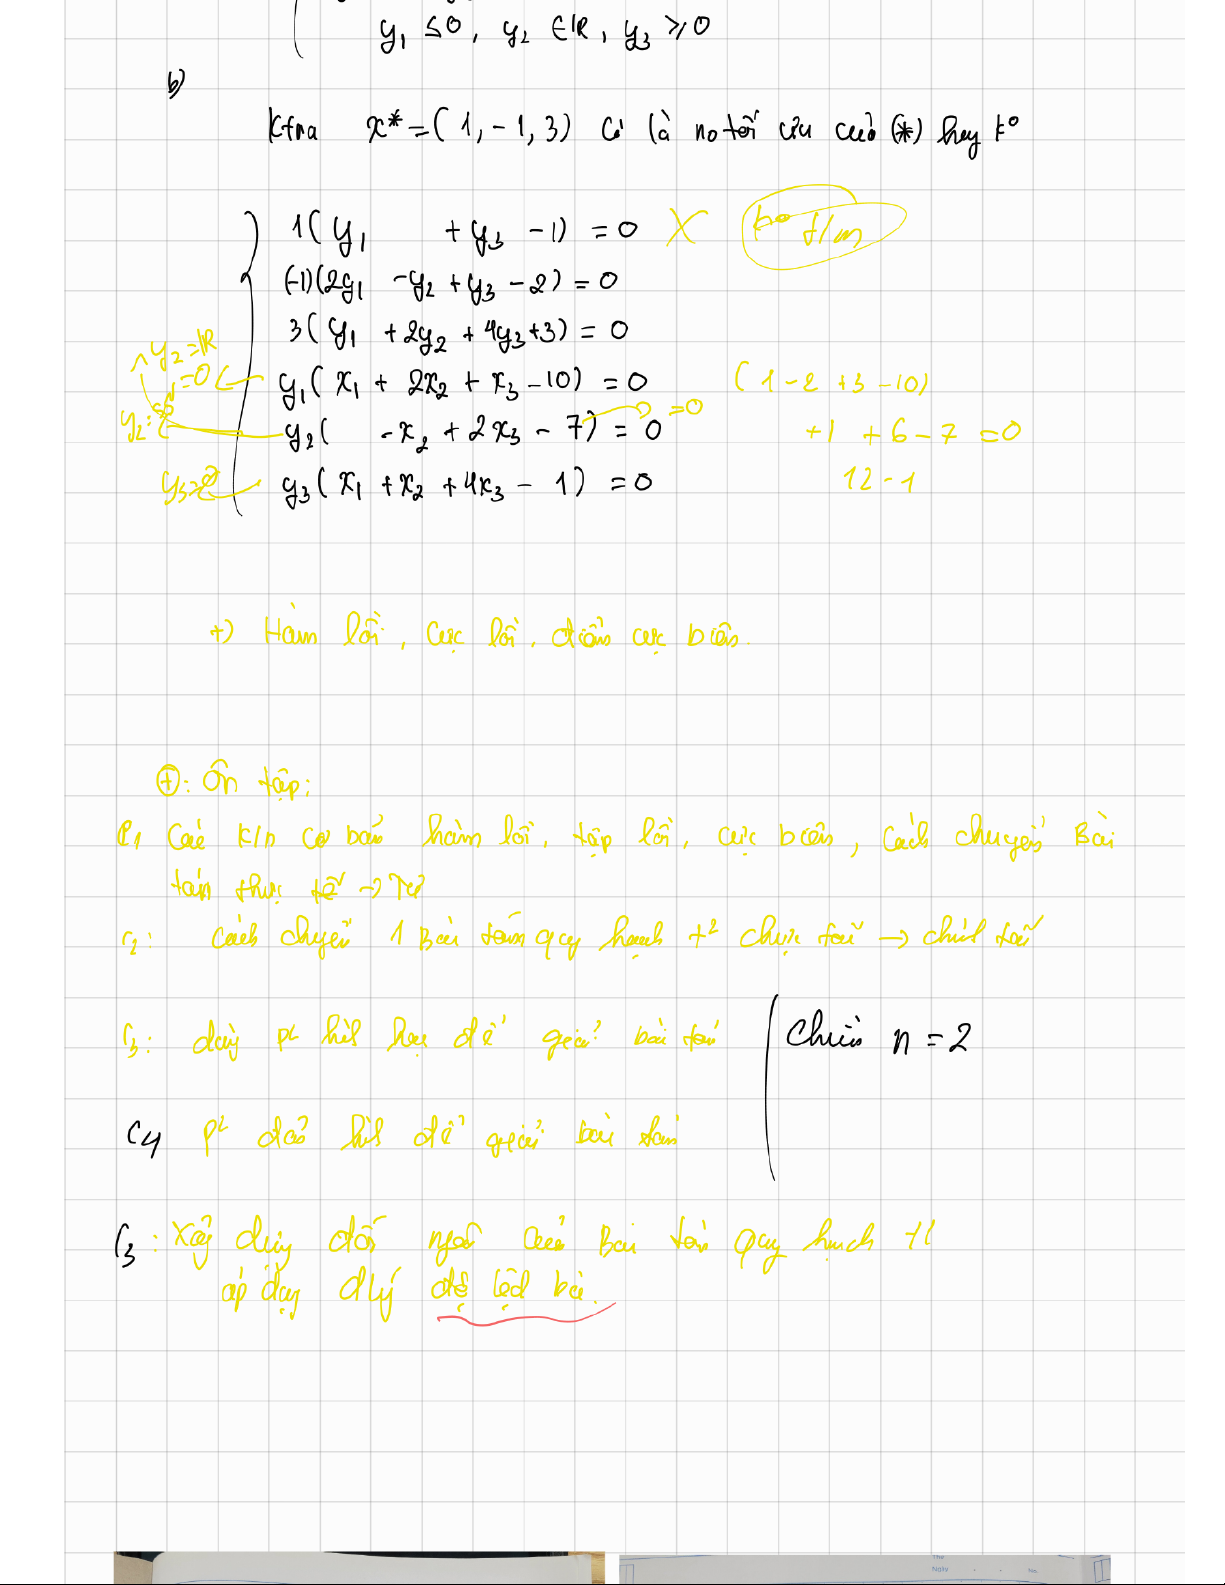 y₁ ≤0, y₂ ∈ℝ, y₃ ⩾0
b)
Ktra x* = (1, -1, 3) có là no tối ưu của (*) hay k°
1( y₁ + y₃ - 1) = 0 X k° t/m
(-1)(2y₁ - y₂ + y₃ - 2) = 0
3( y₁ + 2y₂ + 4y₃ + 3) = 0
y₂ = ℝ
=0 y₁( x₁ + 2x₂ + x₃ - 10) = 0 (1 - 2 + 3 - 10)
y₂ = y₂( -x₂ + 2x₃ - 7) = 0 =0 +1 + 6 - 7 = 0
y₃ y₃( x₁ + x₂ + 4x₃ - 1) = 0 12 - 1
+) Hàm lồi, cực lồi, điểm cực biên.
⊕: Ôn tập:
C₁ Các k/n cơ bản hàm lồi, tập lồi, cực biên, cách chuyển Bài
toán thực tế →
C₂: cách chuyển 1 Bài toán quy hoạch t² chực tắc → chính tắc
C₃: dùng p² hình học để giải bài toán Chiều n = 2
C4 p² đơn hình để giải bài toán
C₃: Xây dựng đối ngẫu của Bài toán quy hoạch tt
áp dụng đlý độ lệch bù.